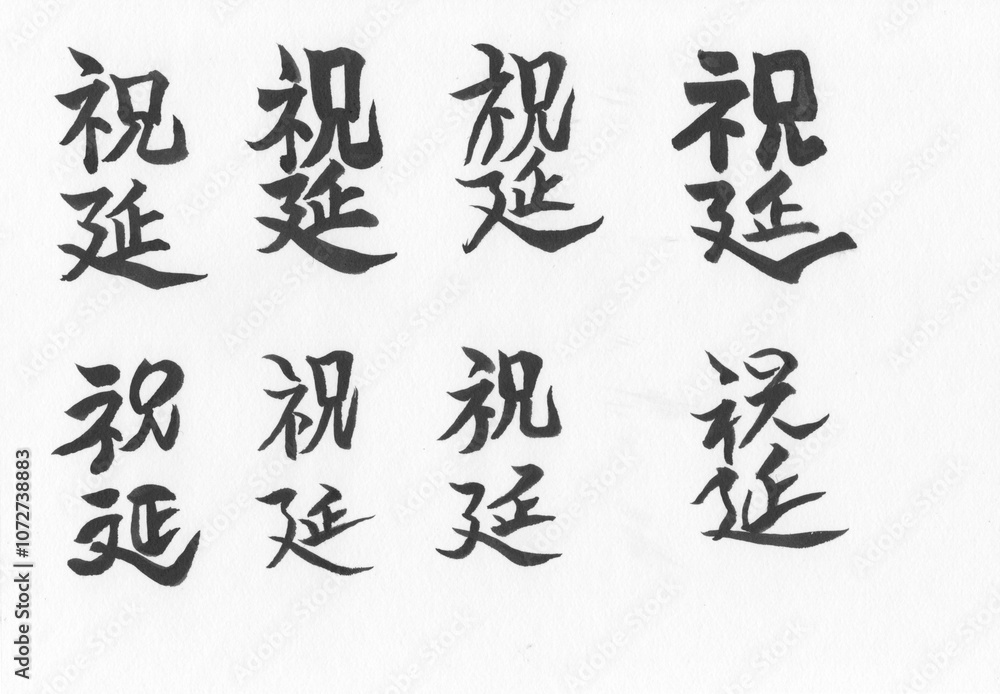 祝延 祝延 祝延 祝延
祝延 祝延 祝延 祝延
Adobe Stock | #1072738883